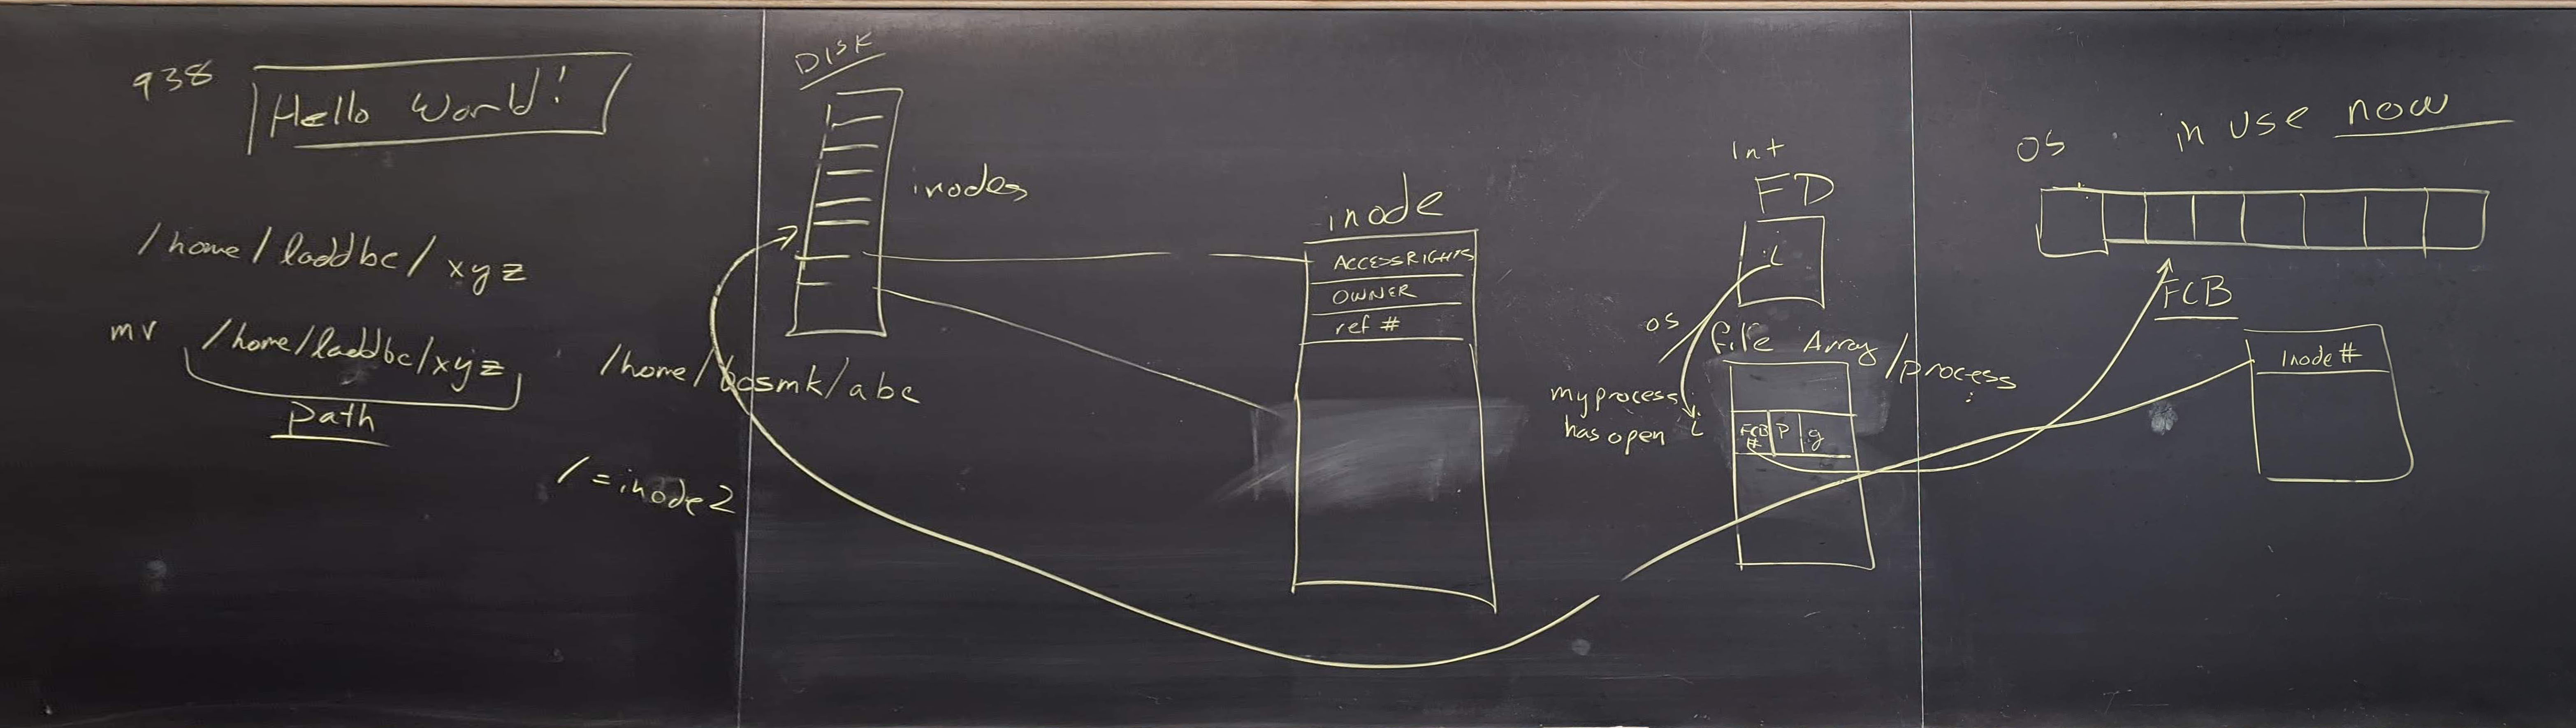 938
Hello World!
/home/laddbc/xyz
mv /home/laddbc/xyz
Path
/ = inode 2
DISK
inodes
inode
ACCESSRIGHTS
OWNER
ref #
Int
FD
i
OS
File Array/process
my process
has open i
FCB
#
P
g
OS in use now
FCB
Inode #